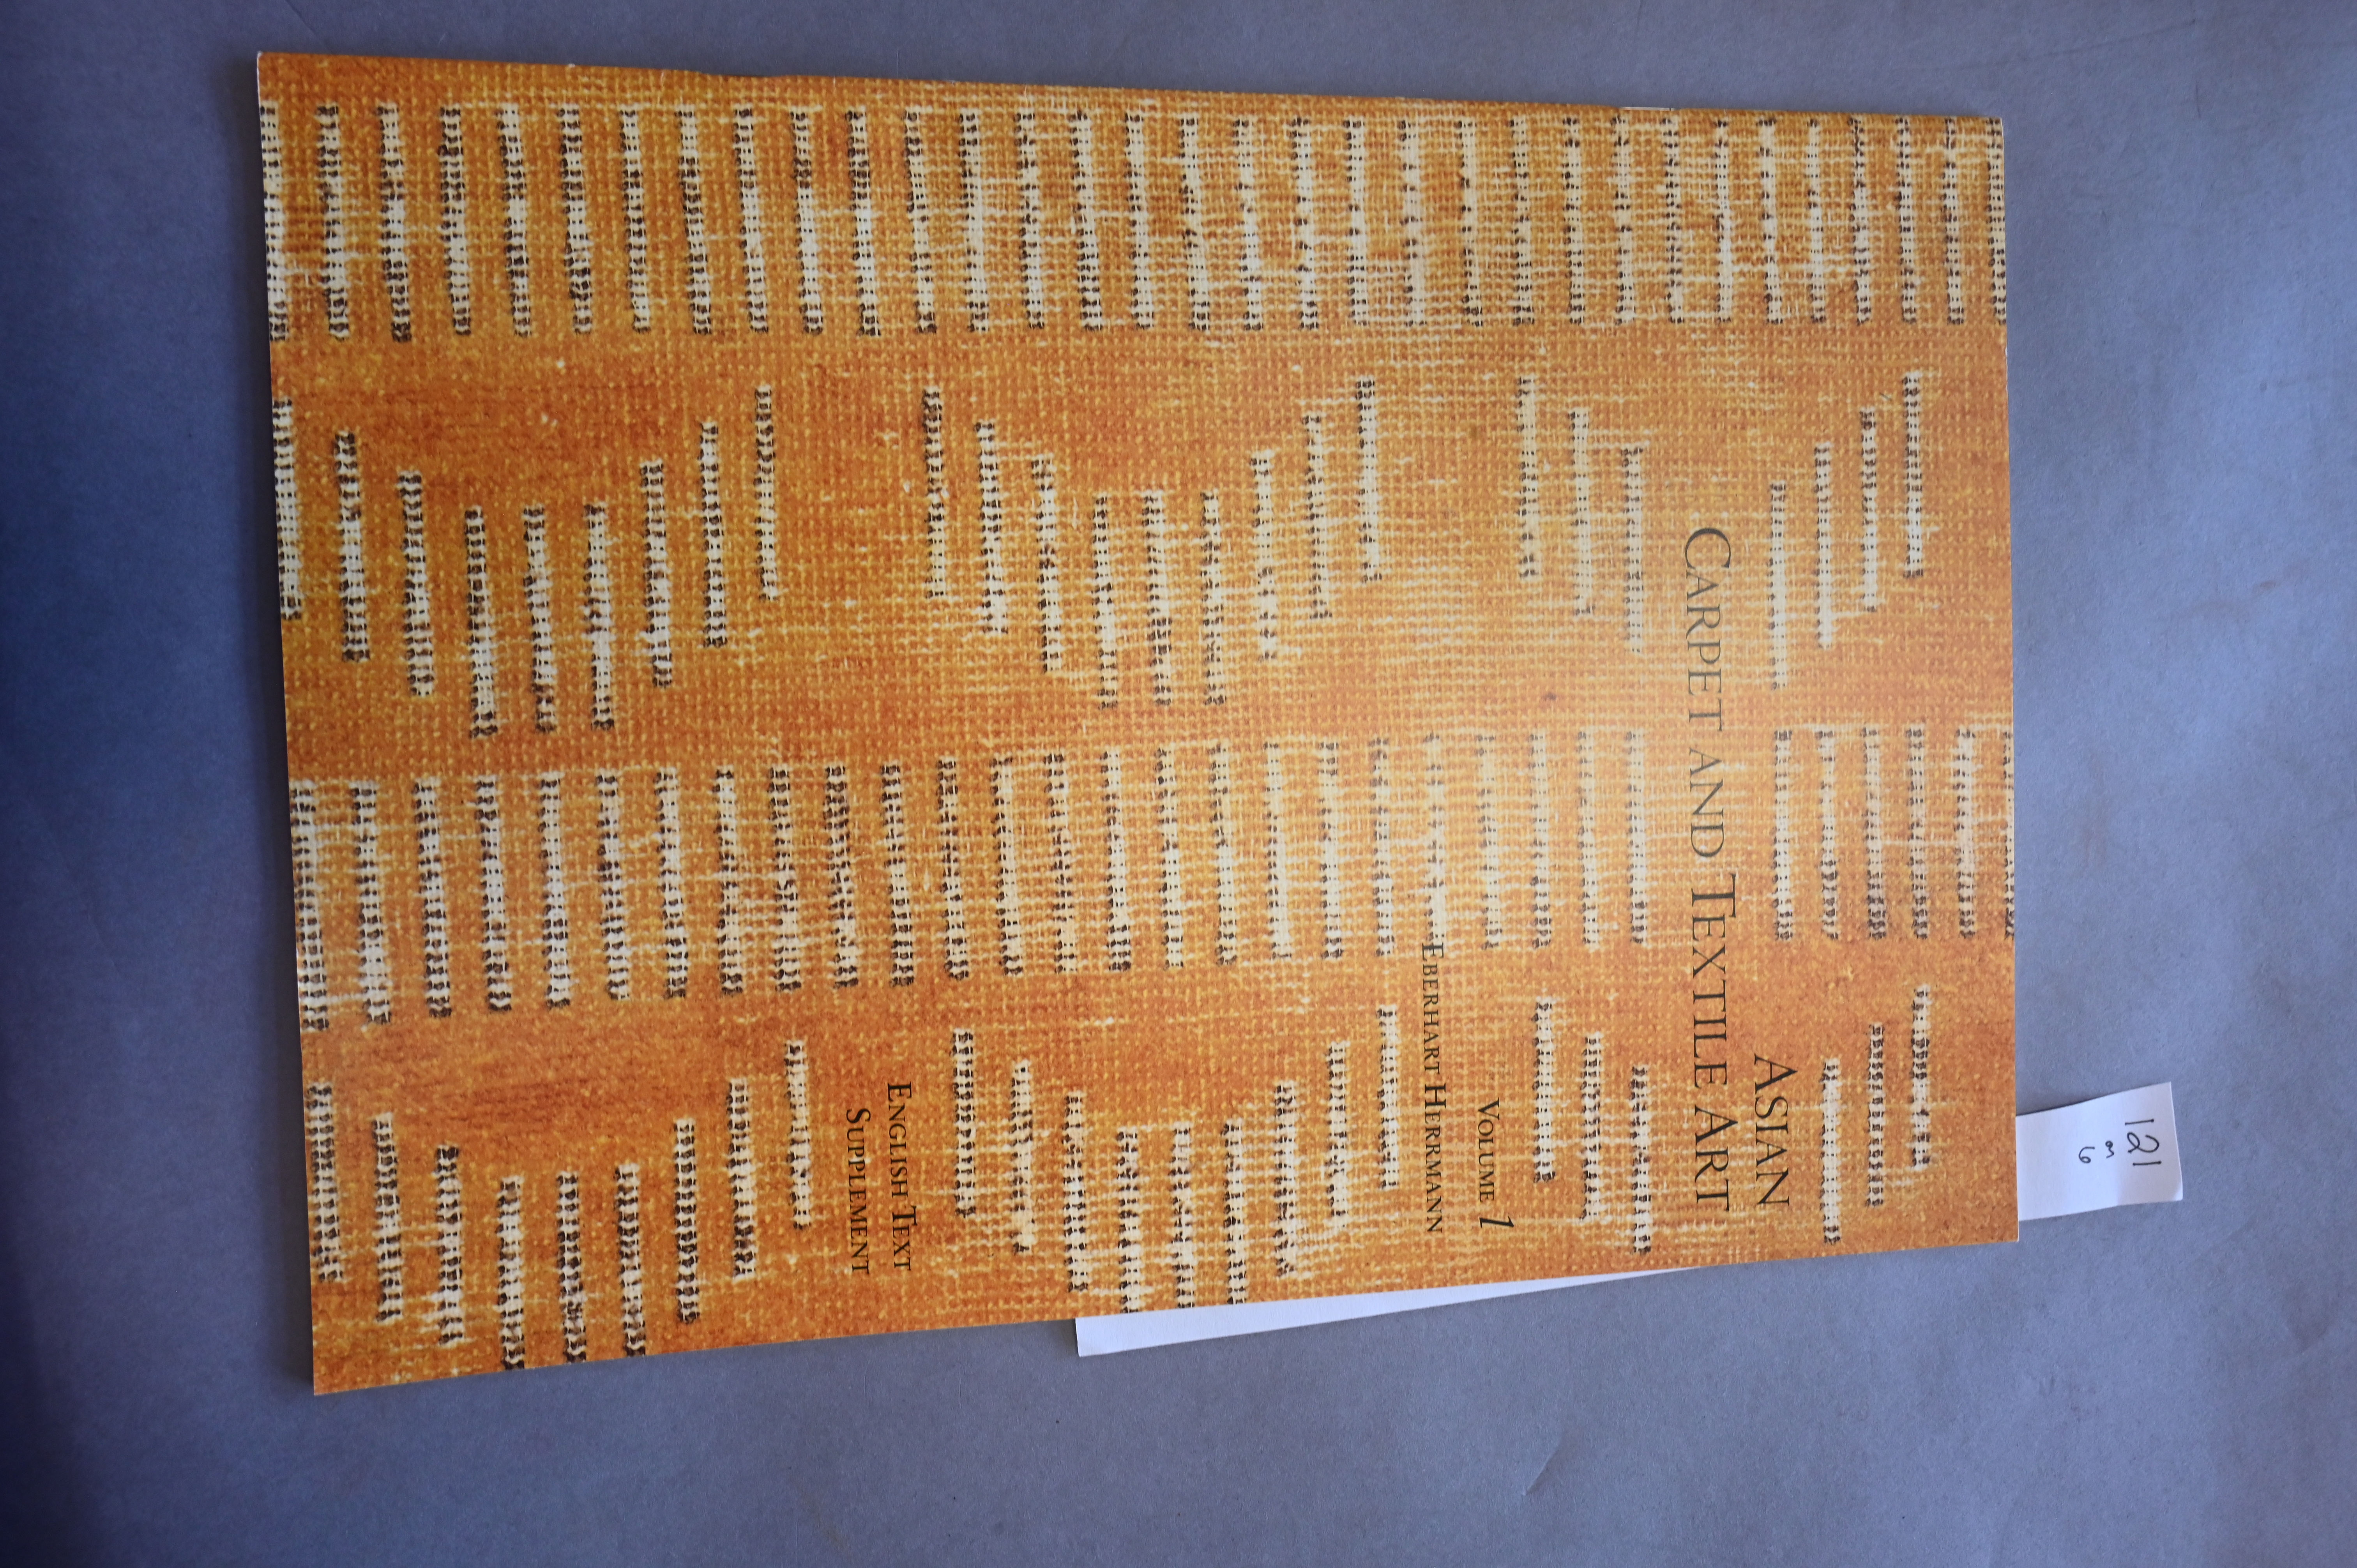 ASIAN
CARPET AND TEXTILE ART
VOLUME 1
EBERHART HERRMANN
ENGLISH TEXT
SUPPLEMENT
121